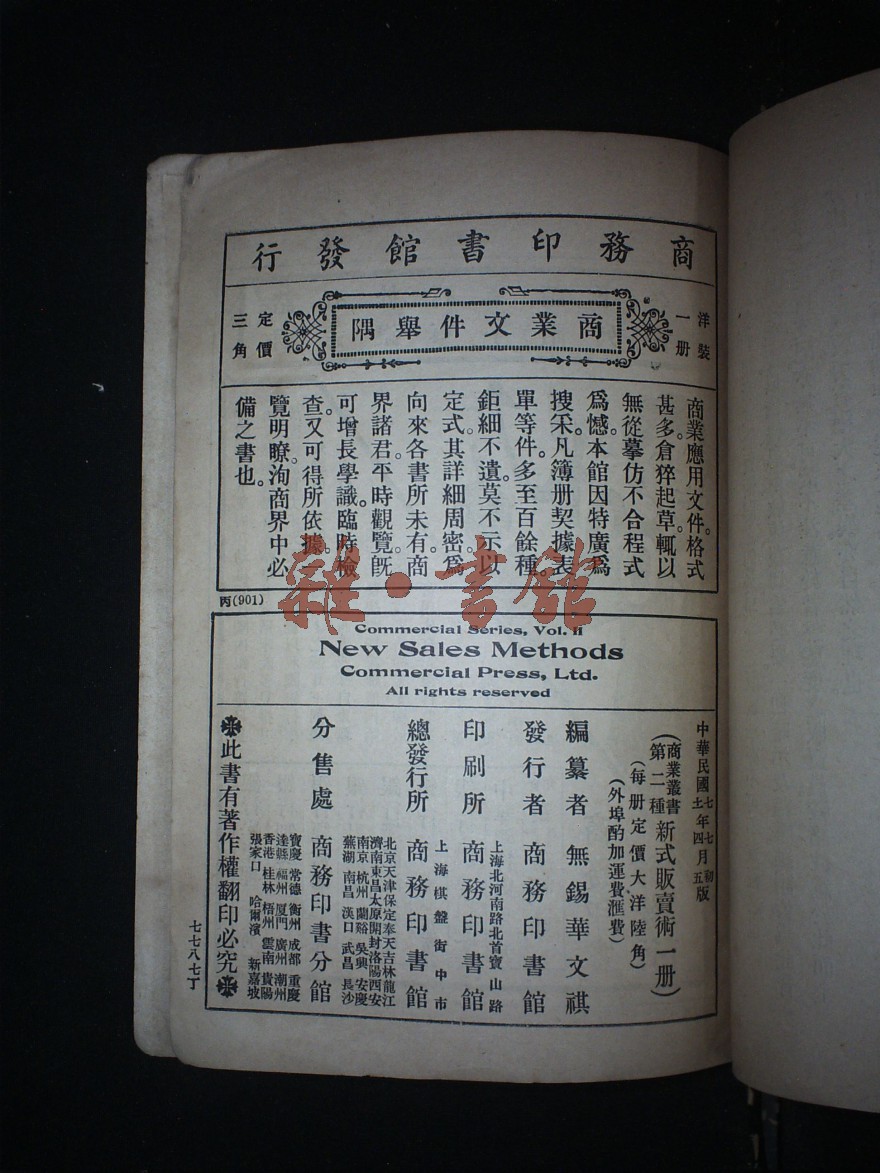 商務印書館發行
洋裝一册
商業文件舉隅
定價三角
商業應用文件。格式
甚多。倉猝起草。輒以
無從摹仿不合程式
爲憾。本館因特廣爲
搜采。凡簿册契據表
單等件。多至百餘種。
鉅細不遺。莫不示以
定式。其詳細周密。爲
向來各書所未有。商
界諸君。平時觀覽。旣
可增長學識。臨時檢
查。又可得所依據。一
覽明瞭。洵商界中必
備之書也。
丙(901)
雜·書館
Commercial Series, Vol. II
New Sales Methods
Commercial Press, Ltd.
All rights reserved
中華民國七年七月初版
十年四月五版
(商業叢書第二種新式販賣術一册)
(每册定價大洋陸角)
(外埠酌加運費滙費)
編纂者 無錫華文祺
發行者 商務印書館
上海北河南路北首寶山路
印刷所 商務印書館
上海棋盤街中市
總發行所 商務印書館
北京天津保定奉天吉林龍江
濟南東昌太原開封洛陽西安
南京杭州蘭谿吳興安慶
蕪湖南昌漢口武昌長沙
分售處 商務印書分館
寶慶常德衡州成都重慶
達縣福州厦門廣州潮州
香港桂林梧州雲南貴陽
張家口哈爾濱新嘉坡
此書有著作權翻印必究
七七八七丁